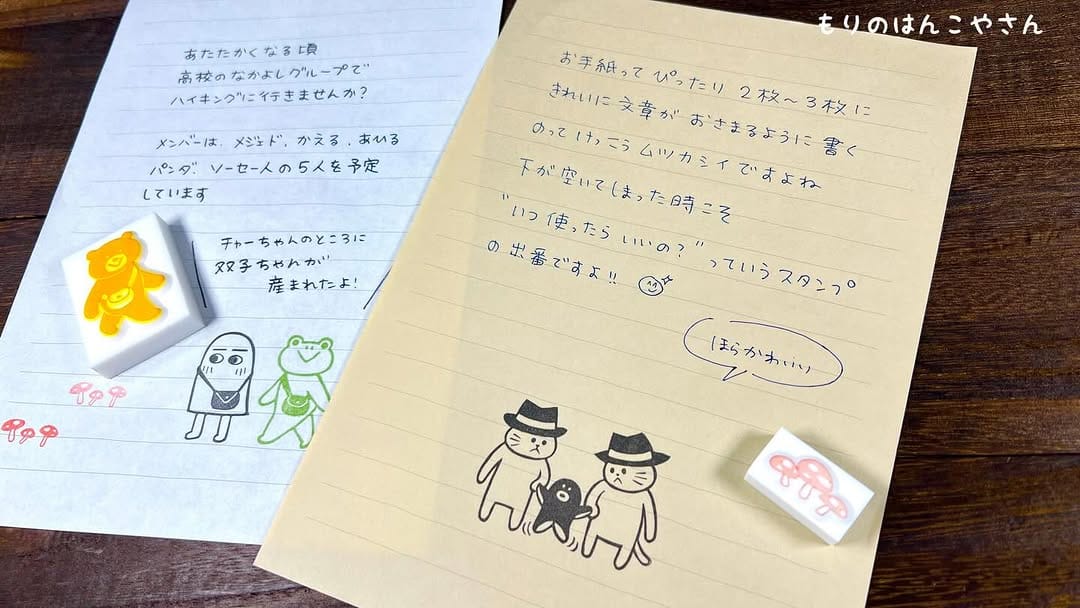 もりのはんこやさん
あたたかくなる頃
高校のなかよしグループで
ハイキングに行きませんか?
メンバーは、メジェド、かえる、あひる
パンダ、ソーセー人の5人を予定
しています
チャーちゃんのところに
双子ちゃんが
産まれたよ!
お手紙って ぴったり 2枚〜3枚に
きれいに 文章が おさまるように 書く
のって けっこう ムツカシイですよね
下が空いてしまった時こそ
"いつ使ったら いいの?"っていうスタンプ
の出番ですよ!!
ほらかわいい